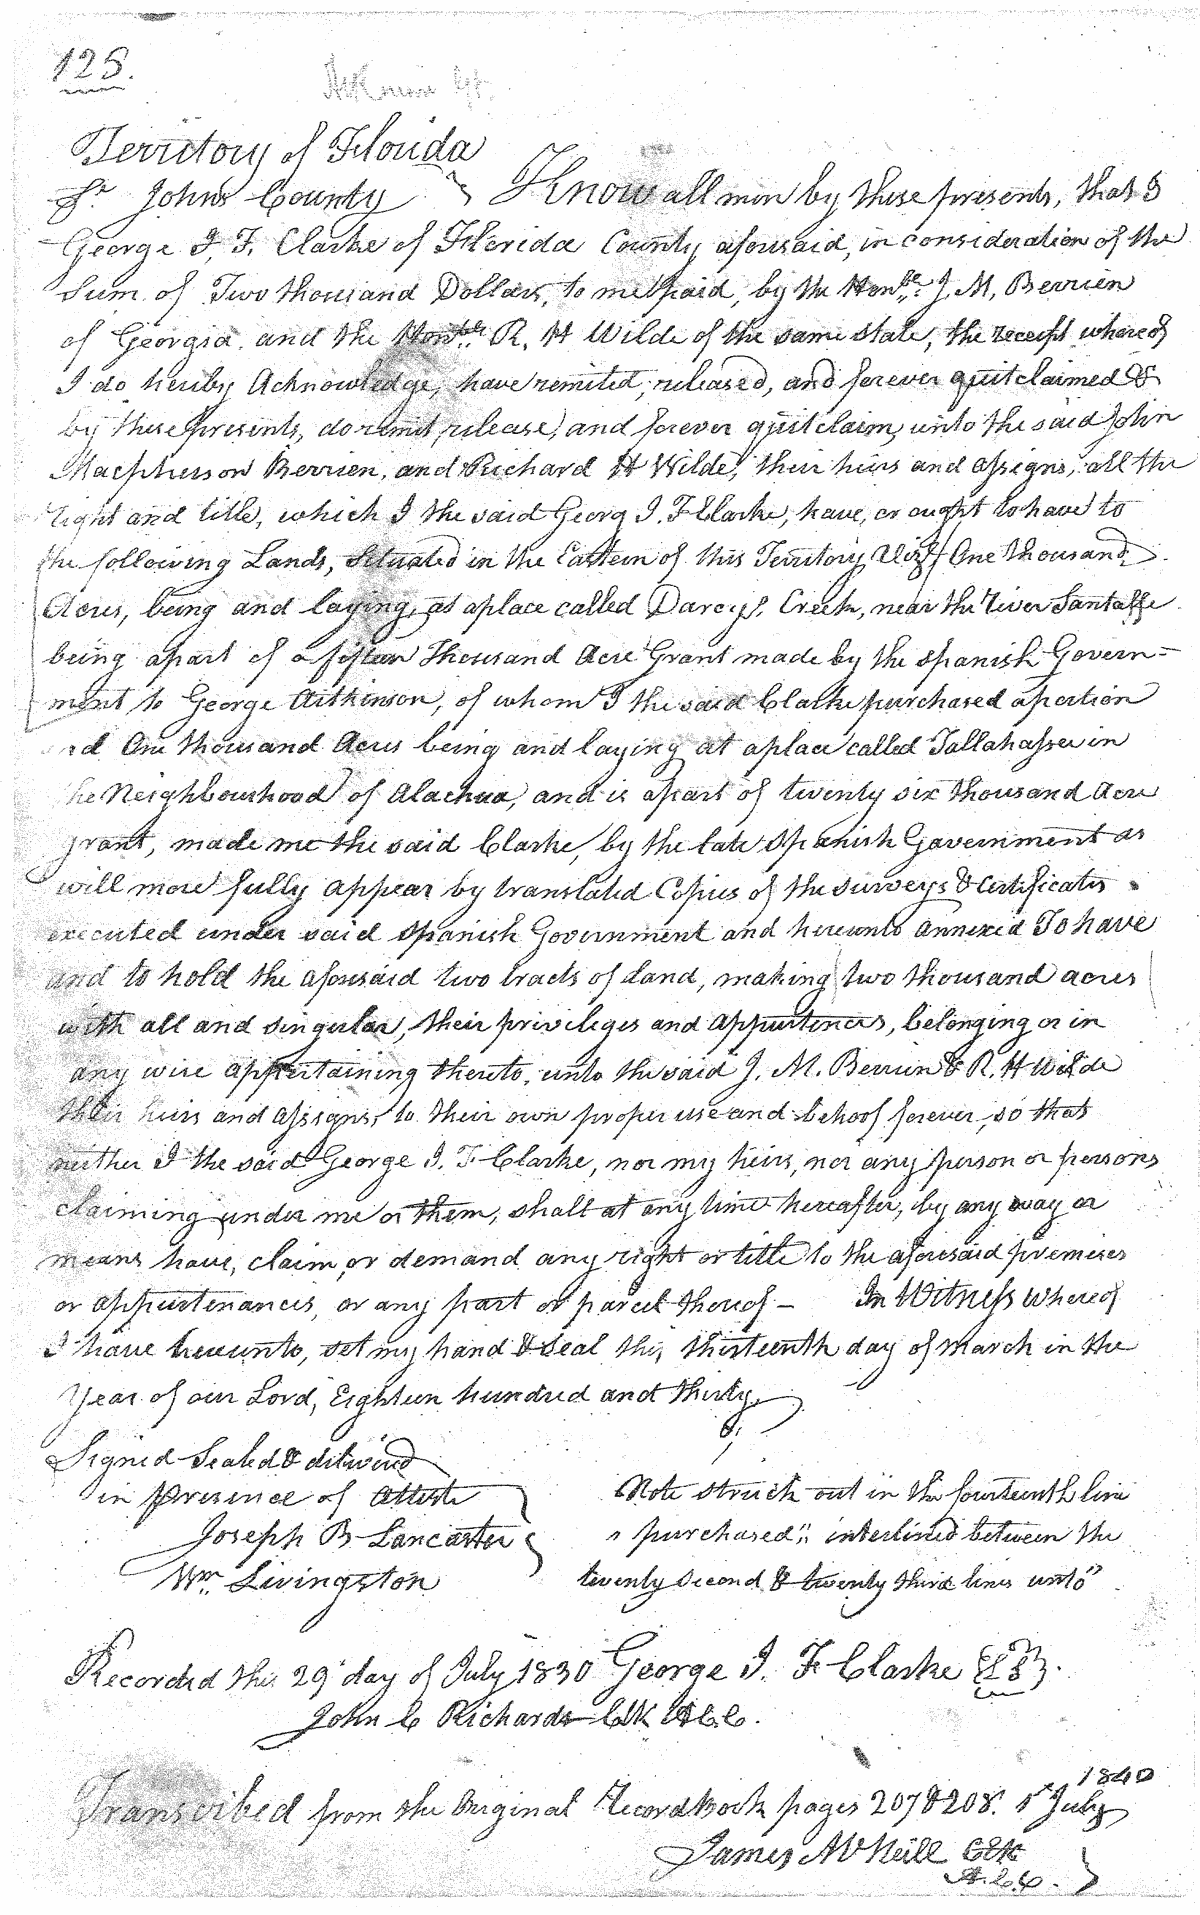 125.
Territory of Florida
St Johns County } Know all men by these presents, that I
George I. F. Clarke of Florida County aforesaid, in consideration of the
Sum of Two thousand Dollars, to me paid, by the Honble. J. M. Berrien
of Georgia, and the Honble R. H Wilde of the same state, the receipt whereof
I do hereby Acknowledge, have remited, released, and forever quitclaimed &
by these presents, do remit, release, and forever quitclaim, unto the said John
Macpherson Berrien, and Richard H Wilde, their heirs and assigns, all the
right and title, which I the said Georg I. F Clarke, have, or ought to have to
the following Lands, situated in the Eastern of this Territory, Viz, One thousand
Acres, being and laying, at a place called Darcys, Creek, near the River Santaffe
being a part of a fifteen Thousand Acre Grant made by the Spanish Govern=
ment to George Aitkinson, of whom I the said Clarke purchased a portion
and One thousand Acres being and laying at a place called Tallahassee in
the Neighbourhood of Alachua, and is a part of twenty six thousand Acre
grant, made me the said Clarke, by the late Spanish Government as
will more fully appear by translated Copies of the surveys & Certificates
executed under said Spanish Government and hereunto Annexed To have
and to hold the aforesaid two tracts of Land, making two thousand acres
with all and singular, their privileges and appurtences, belonging or in
any wise appertaining thereto, unto the said J. M. Berrien & R. H Wilde
their heirs and assigns, to their own proper use and behoof forever, so that
neither I the said George I. F. Clarke, nor my heirs, nor any person or persons
claiming under me or them, shall at any time hereafter, by any way or
means have, claim, or demand any right or title to the aforesaid premises
or appurtenances, or any part or parcel thereof — In Witness whereof
I have hereunto, set my hand & seal this, thirteenth day of March in the
Year of our Lord, Eighteen hundred and thirty.
Signed Sealed & deliverd
in presence of Atteste
Joseph B Lancaster
Wm. Livingston
Note struck out in the fourteenth line
" purchased", interlined between the
twenty second & twenty third lines unto"
Recorded this 29 day of July 1830 George I. F. Clarke {LS}.
John C Richards Clk A.C.C.
Transcribed from the Original Record Book pages 207 & 208. 1st July 1840
James McNeill Clk
A.C.C.